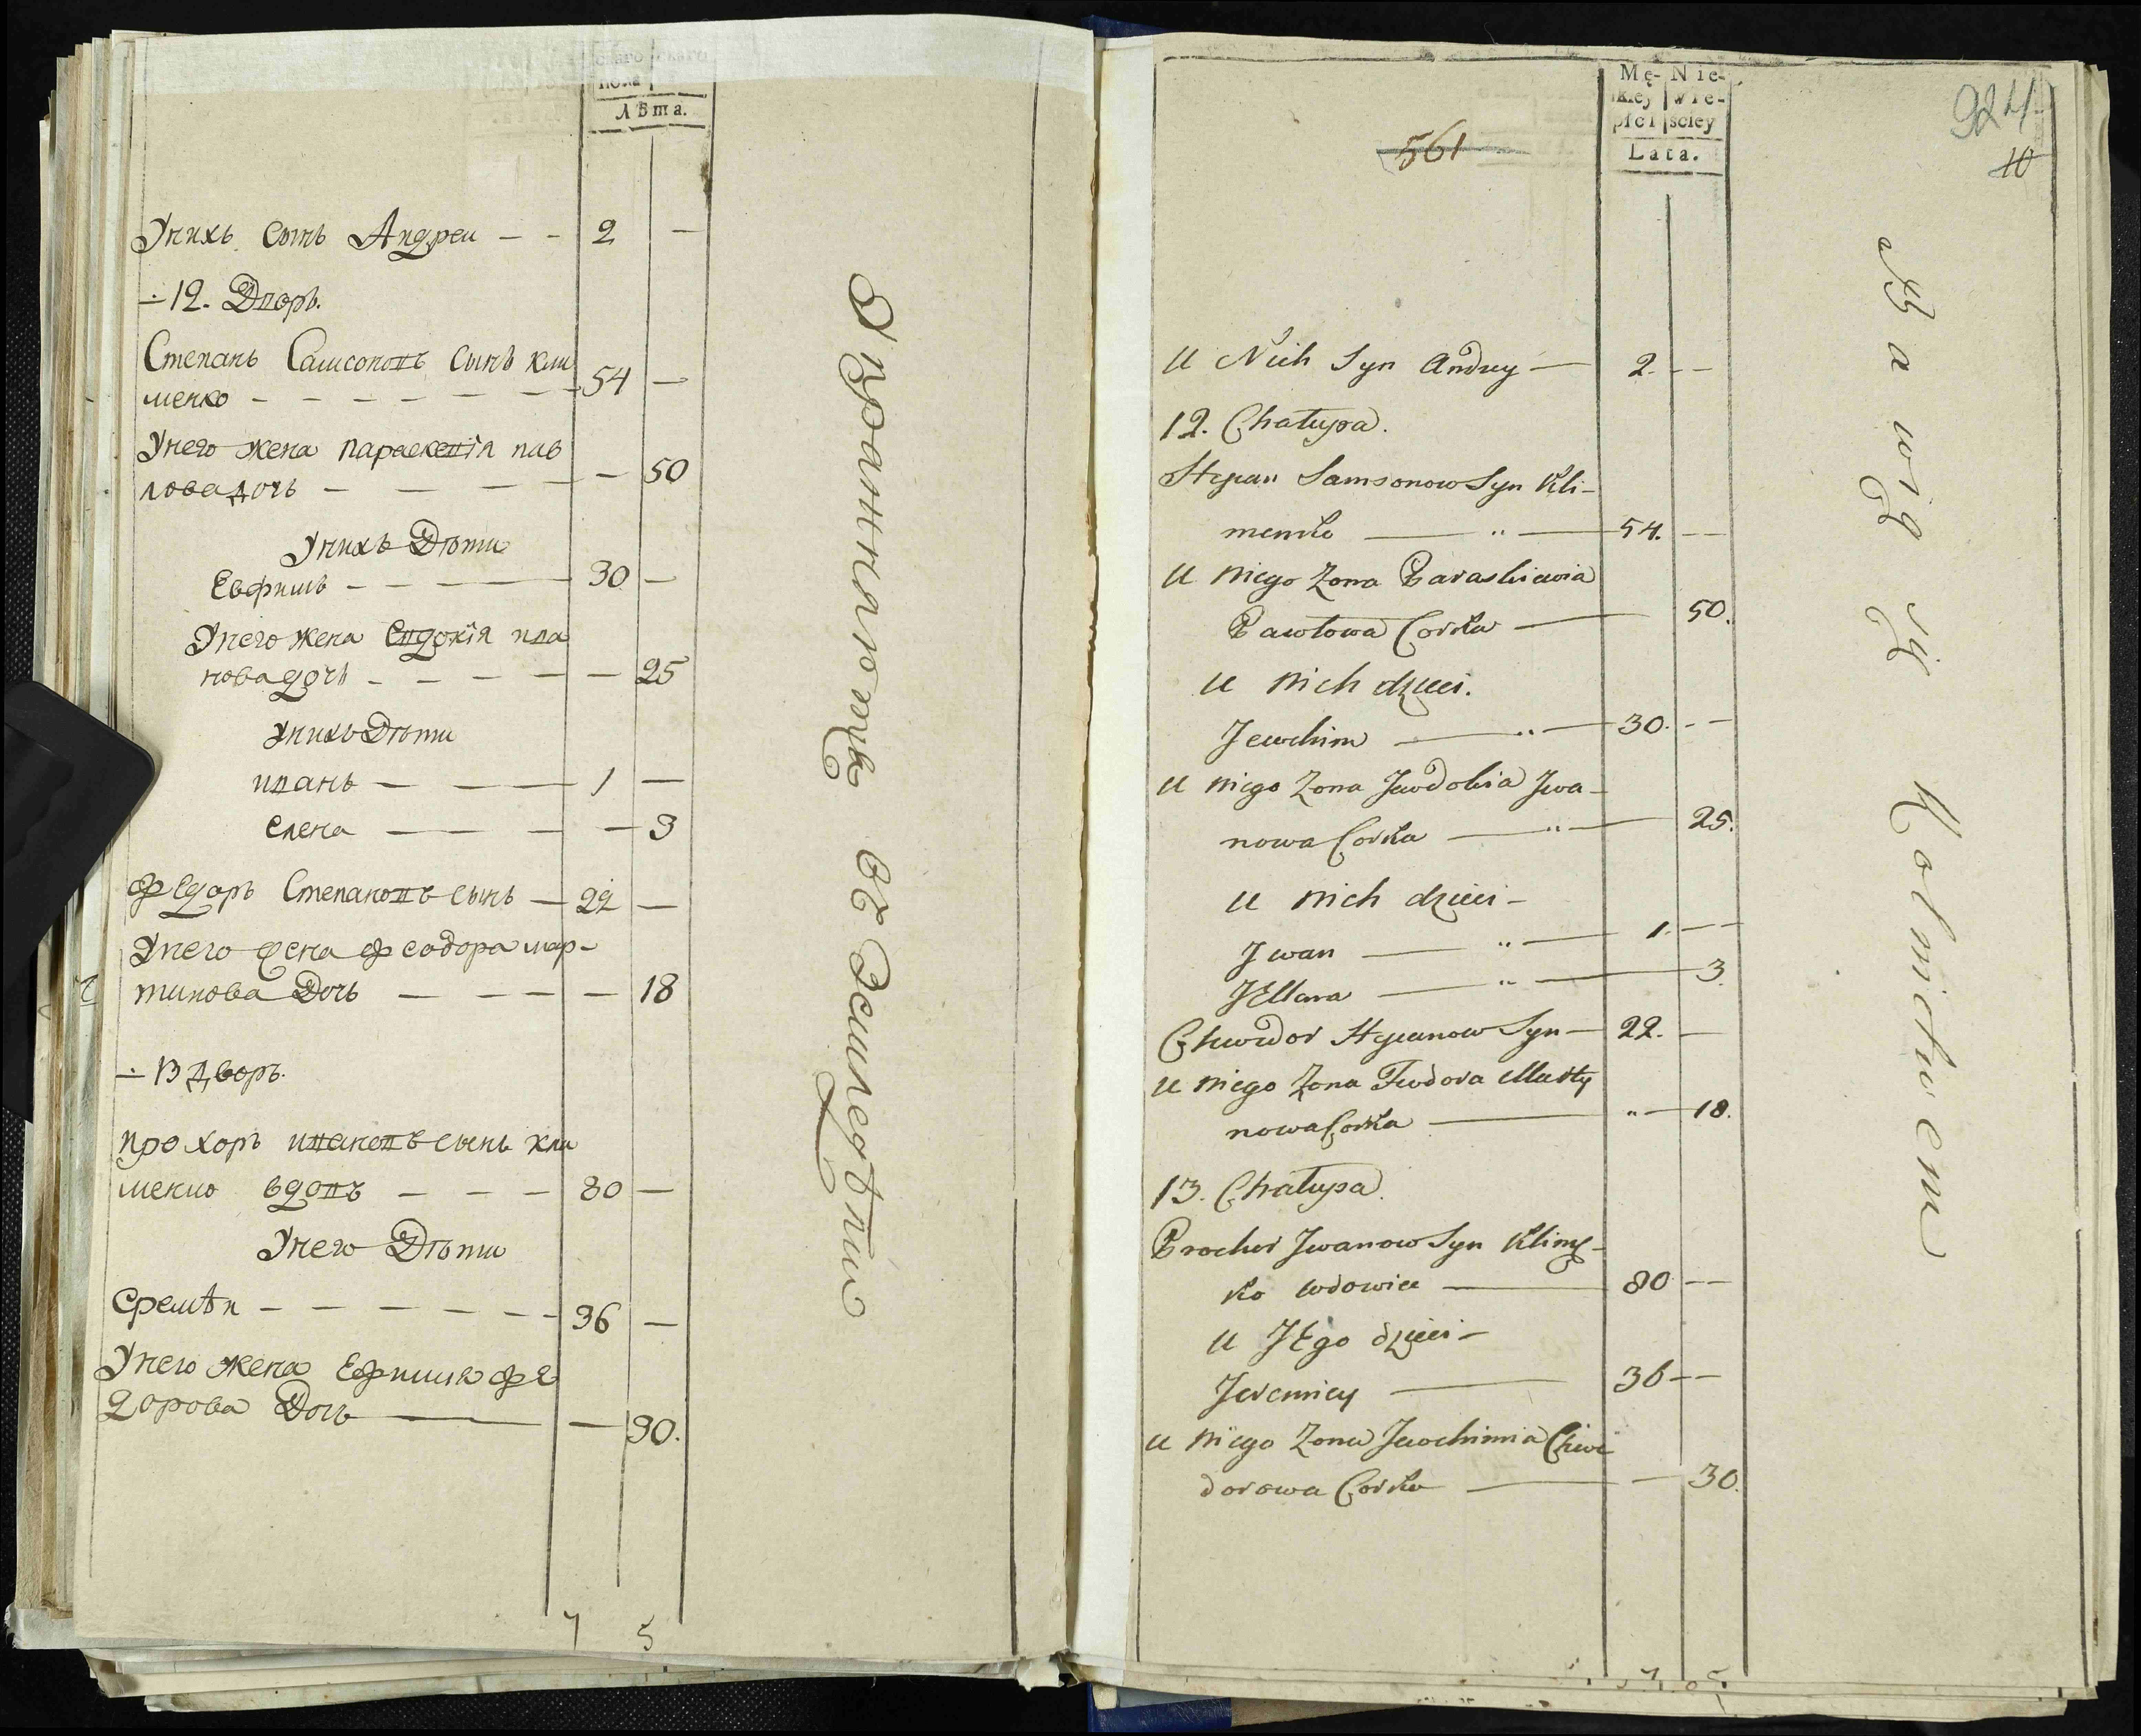 скаго
пола
Лѣта.
Унихъ сынъ Андреи — — 2 —
12. Дворъ.
Степанъ Самсоновъ сынъ кли
менко — — — — — — 54 —
Унего жена параскевія пав
лова дочь — — — — — 50
Унихъ Дѣти
Евфимъ — — — 30 —
Унего жена Евдокія ива
нова дочь — — — — — 25
Унихъ Дѣти
иванъ — — — 1 —
елена — — — — 3
федоръ Степановъ сынъ — 22 —
Унего жена феодора мар-
тинова Дочь — — — — 18
13 дворъ.
прохоръ ивановъ сынъ кли
менко вдовъ — — — 80 —
Унего Дѣти
еремѣи — — — — — — 36 —
Унего жена Ефимия фе
дорова Дочь — — 30.
7 5
Упражняются въ Земледѣліи
Mę- Nie-
skiey wie-
płci sciey
Lata.
561
924
10
U Nich Syn Andrey — 2. —
12. Chałupa.
Stepan Samsonow Syn Kli-
menko — „ — 54. —
U niego Zona Paraskiewia
Pawłowa Corka — 50.
U nich dzieci.
Jewchim — „ — 30. —
U niego Zona Jewdokia Jwa-
nowa Corka — „ — 25.
U nich dzieci —
Jwan — „ — 1. —
JEllena — „ — 3.
Chwedor Stepanow Syn — 22. —
U niego Zona Fedora Marty
nowa Corka — „ — 18.
13. Chałupa.
Prochor Jwanow Syn Klimę-
ko wdowiec — 80 —
U JEgo dzieci —
Jeremiey — 36 —
U niego Zona Jewchimia Chwe
dorowa Corka — — 30.
7 5
Bawią się Rolnictwem